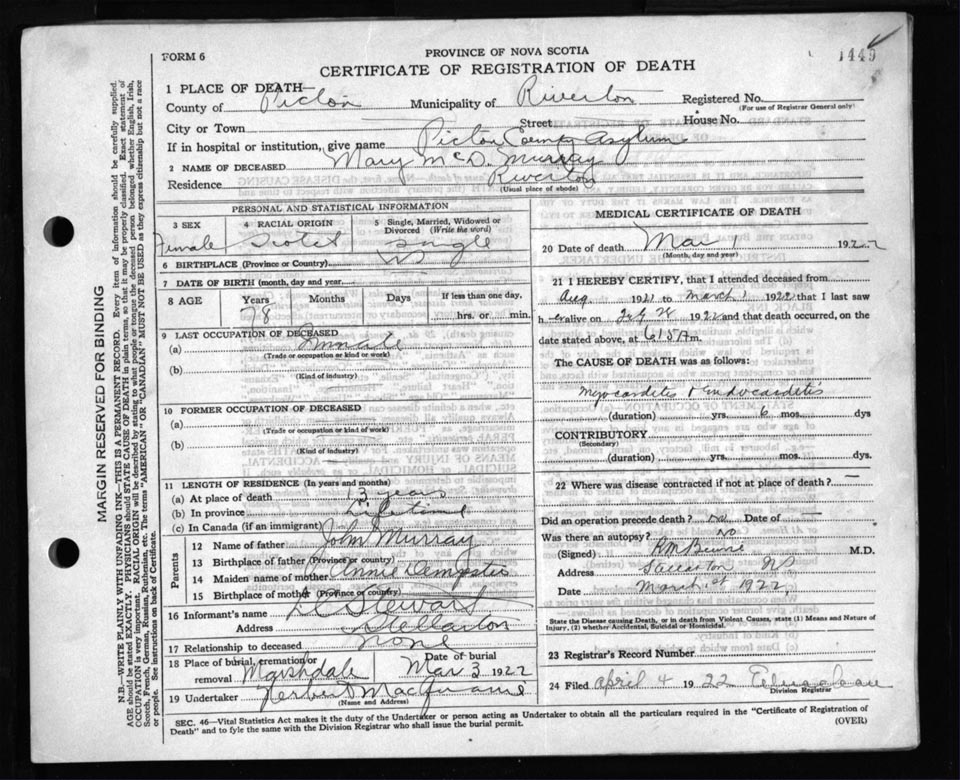 FORM 6
PROVINCE OF NOVA SCOTIA
CERTIFICATE OF REGISTRATION OF DEATH
1449
1 PLACE OF DEATH—
County of Pictou Municipality of Riverton Registered No.
(For use of Registrar General only)
City or Town Street House No.
If in hospital or institution, give name Pictou County Asylum
2 NAME OF DECEASED Mary McD. Murray
Residence Riverton
(Usual place of abode)
PERSONAL AND STATISTICAL INFORMATION
3 SEX 4 RACIAL ORIGIN 5 Single, Married, Widowed or Divorced (Write the word)
Female Scotch Single
6 BIRTHPLACE (Province or Country) NS
7 DATE OF BIRTH (month, day and year)
8 AGE Years Months Days If less than one day,
78 hrs. or min.
9 LAST OCCUPATION OF DECEASED
(a) Inmate
(Trade or occupation or kind of work)
(b)
(Kind of industry)
10 FORMER OCCUPATION OF DECEASED
(a)
(Trade or occupation or kind of work)
(b)
(Kind of industry)
11 LENGTH OF RESIDENCE (In years and months)
(a) At place of death 13 years
(b) In province Lifetime
(c) In Canada (if an immigrant)
Parents
12 Name of father John Murray
13 Birthplace of father (Province or Country)
14 Maiden name of mother Annie Dempster
15 Birthplace of mother (Province or Country)
16 Informant's name Stewart
Address Stellarton
17 Relationship to deceased none
18 Place of burial, cremation or removal Marshdale
Date of burial Mar 3 1922
19 Undertaker Herbert
(Name and Address)
MEDICAL CERTIFICATE OF DEATH
20 Date of death Mar 1 1922
(Month, day and year)
21 I HEREBY CERTIFY, that I attended deceased from
Aug. 1921 to March 1 1922 that I last saw
h er alive on 1922 and that death occurred, on the
date stated above, at 6 15 A m.
The CAUSE OF DEATH was as follows:
Myocarditis & Endocarditis
(duration) yrs. 6 mos. dys
CONTRIBUTORY
(Secondary)
(duration) yrs. mos. dys.
22 Where was disease contracted if not at place of death?
Did an operation precede death? no Date of
Was there an autopsy? No
(Signed) M.D.
Address NS
Date March 1st 1922
State the Disease causing Death, or in death from Violent Causes, state (1) Means and Nature of Injury, (2) whether Accidental, Suicidal or Homicidal.
23 Registrar's Record Number
24 Filed April 4 1922
Division Registrar
SEC. 46—Vital Statistics Act makes it the duty of the Undertaker or person acting as Undertaker to obtain all the particulars required in the "Certificate of Registration of
Death" and to fyle the same with the Division Registrar who shall issue the burial permit.
(OVER)
MARGIN RESERVED FOR BINDING
N.B.—WRITE PLAINLY WITH UNFADING INK—THIS IS A PERMANENT RECORD. Every item of information should be carefully supplied.
AGE should be stated EXACTLY. PHYSICIANS should STATE CAUSE OF DEATH in plain terms, so that it may be properly classified. Exact statement of
OCCUPATION is very important. RACIAL ORIGIN will be described by stating to what people or tongue the deceased person belonged whether English, Irish,
Scotch, French, German, Russian, Ruthenian, etc. The terms "AMERICAN" OR "CANADIAN" MUST NOT BE USED as they express citizenship but not a race
or people. See instructions on back of Certificate.